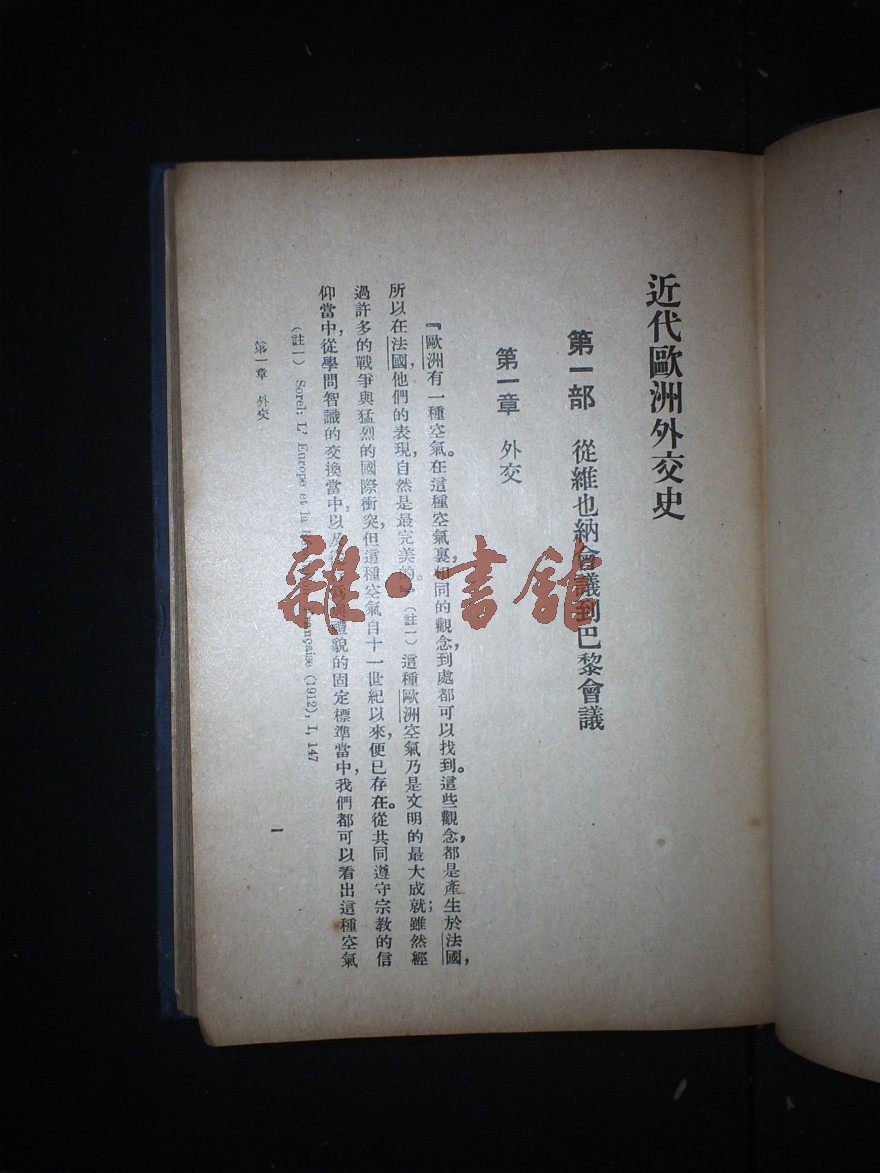 近代歐洲外交史
第一部 從維也納會議到巴黎會議
第一章 外交
『歐洲有一種空氣。在這種空氣裏,相同的觀念,到處都可以找到。這些觀念,都是產生於法國,
所以在法國,他們的表現,自然是最完美的。』(註一)這種歐洲空氣乃是文明的最大成就;雖然經
過許多的戰爭與猛烈的國際衝突,但這種空氣自十一世紀以來,便已存在。從共同遵守宗教的信
仰當中,從學問智識的交換當中,以及禮貌的固定標準當中,我們都可以看出這種空氣
(註一) Sorel: L' Europe et la Française (1912), I, 147
第一章 外交
一
雜·書館